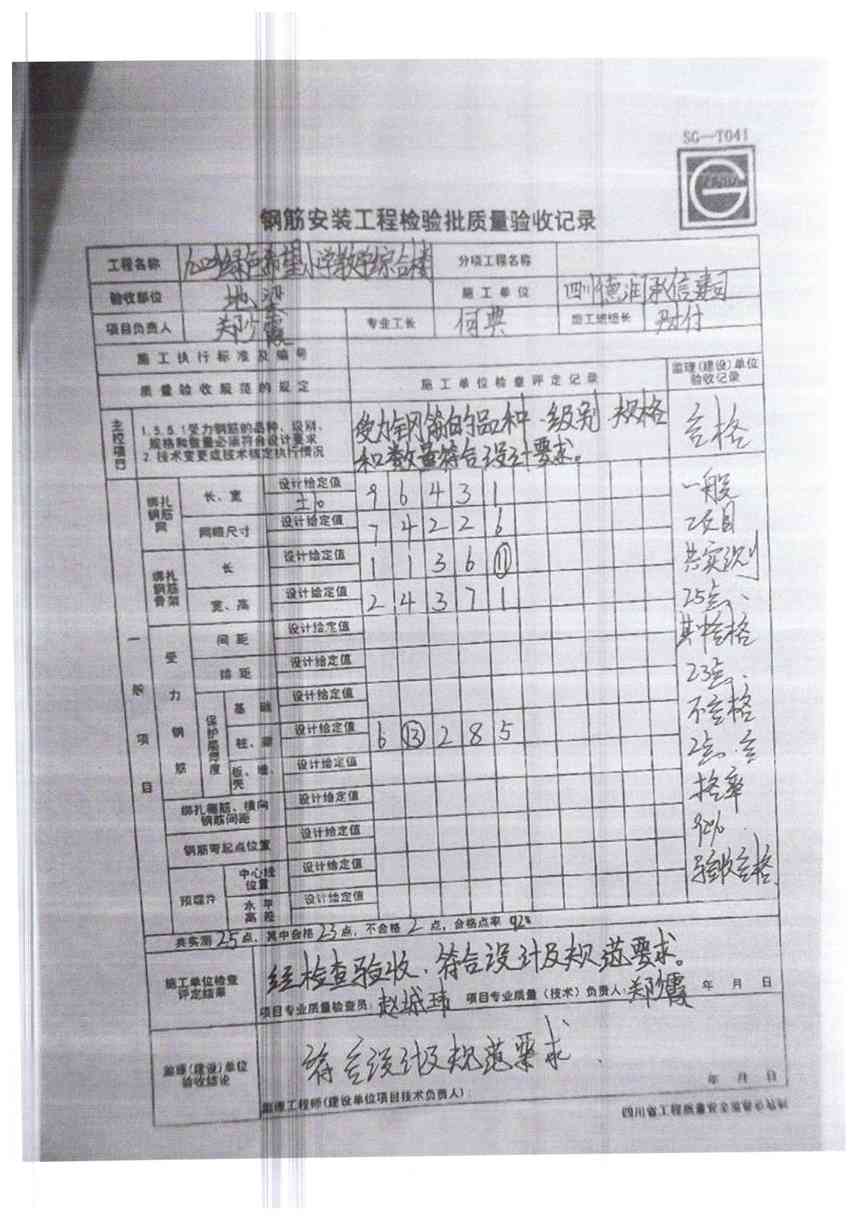 SG—T041
钢筋安装工程检验批质量验收记录
工程名称 绿色希望小学教学综合楼 分项工程名称
验收部位 地梁 施工单位 四川德润承信建司
项目负责人 郑少霞 专业工长 何典 施工班组长
施工执行标准及编号
质量验收规范的规定 施工单位检查评定记录 监理(建设)单位验收记录
主控项目
1.5.5.1受力钢筋的品种、级别、
规格和数量必须符合设计要求
2.技术变更或技术核定执行情况
受力钢筋的品种、级别 规格
和数量符合设计要求。
合格
一般项目
绑扎钢筋网 长、宽 设计给定值 9 6 4 3 1
网眼尺寸 设计给定值 7 4 2 2 6
绑扎钢筋骨架 长 设计给定值 1 1 3 6 11
宽、高 设计给定值 2 4 3 7 1
受力钢筋 间距 设计给定值
排距 设计给定值
保护层厚度 基础 设计给定值
柱、梁 设计给定值 6 13 2 8 5
板、墙、壳 设计给定值
绑扎箍筋、横向钢筋间距 设计给定值
钢筋弯起点位置 设计给定值
预埋件 中心线位置 设计给定值
水平高差 设计给定值
一般
项目
共实测
25点、
其中合格
23点、
不合格
2点、合
格率
92%
验收合格
共实测 25 点,其中合格 23 点,不合格 2 点,合格点率 92%
施工单位检查评定结果 经检查验收、符合设计及规范要求。
项目专业质量检查员: 赵城玮 项目专业质量(技术)负责人: 郑少霞 年 月 日
监理(建设)单位验收结论 符合设计及规范要求
监理工程师(建设单位项目技术负责人): 年 月 日